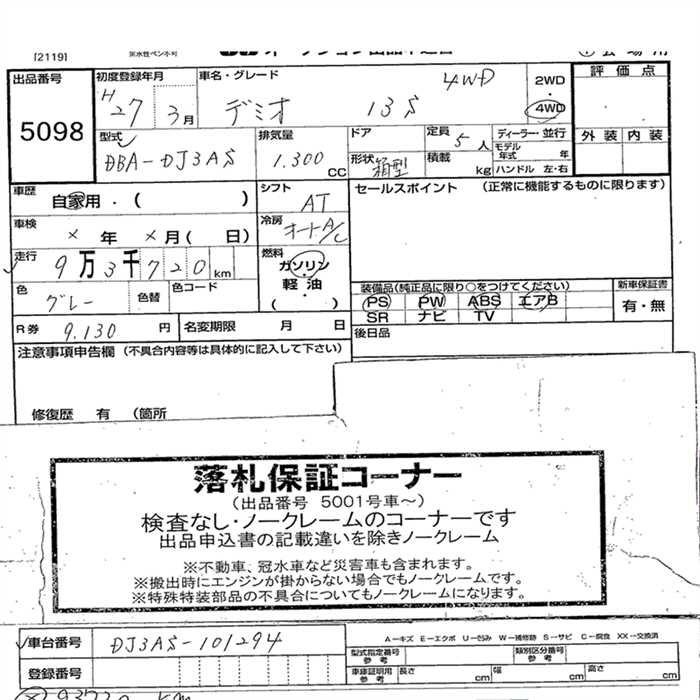 [2119]
出品番号
5098
初度登録年月
H27 3月
車名・グレード
デミオ 13S 4WD
2WD
・
4WD
評価点
外装 内装
型式
DBA-DJ3AS
排気量
1.300 CC
ドア
形状 箱型
定員 5人
積載 kg
ディーラー・並行
モデル年式 年
ハンドル 左・右
車歴
自家用・( )
シフト
AT
セールスポイント (正常に機能するものに限ります)
車検
× 年 × 月( 日)
冷房
オートA/C
走行
9万3千720km
燃料
ガソリン
・
軽油
( )
色
グレー
色替
色コード
装備品(純正品に限り○をつけてください)
PS PW ABS エアB
SR ナビ TV
新車保証書
有・無
R券 9.130 円
名変期限 月 日
後日品
注意事項申告欄(不具合内容等は具体的に記入して下さい)
修復歴 有 (箇所
落札保証コーナー
(出品番号 5001号車~)
検査なし・ノークレームのコーナーです
出品申込書の記載違いを除きノークレーム
※不動車、冠水車など災害車も含まれます。
※搬出時にエンジンが掛からない場合でもノークレームです。
※特殊特装部品の不具合についてもノークレームになります。
車台番号 DJ3AS-101294
A-キズ E-エクボ U-凹み W-補修跡 S-サビ C-腐食 XX-交換済
型式指定番号 参考
類別区分番号 参考
登録番号
車庫証明用 参考 長さ cm 幅 cm 高さ cm